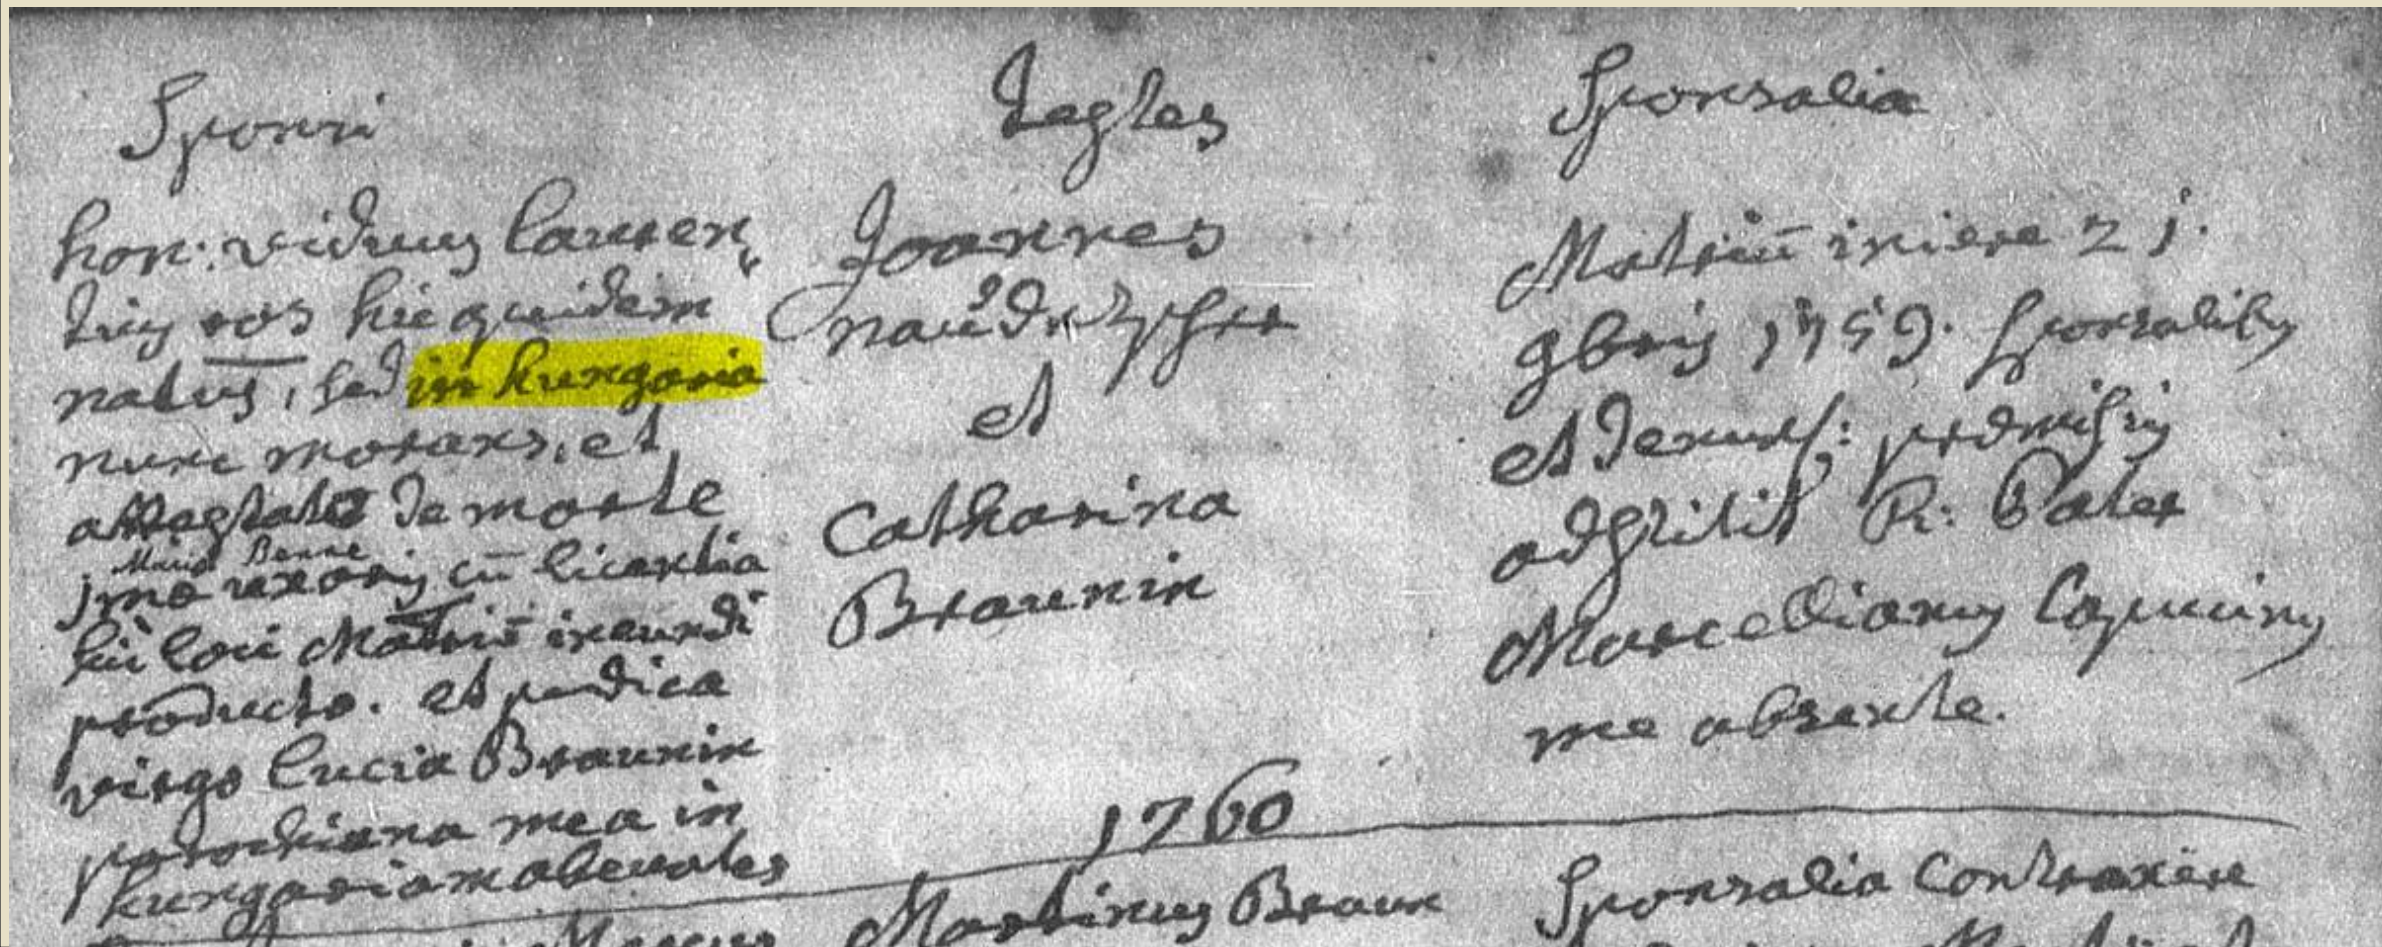 Sponsi
hon: viduus Lauren,
tius ros hic quidem
natus, sed in hungaria
nunc morans, et
attestato de morte
Maria Benne
1mae uxoris cū licentia
hui loci Matriū ineundi
producto. et pudica
virgo Lucia Braunin
parochiana mea in
hungariam abeuntes
Testes
Joannes
et
Catharina
Braunin
Sponsalia
Matriū iniere 21.
9bris 1759. sponsalibus
et denunt: praemissis
adstitit R: Pater
Marcellianus Capucinus
me absente.
1760
Martinus Braun
Sponsalia Contraxere